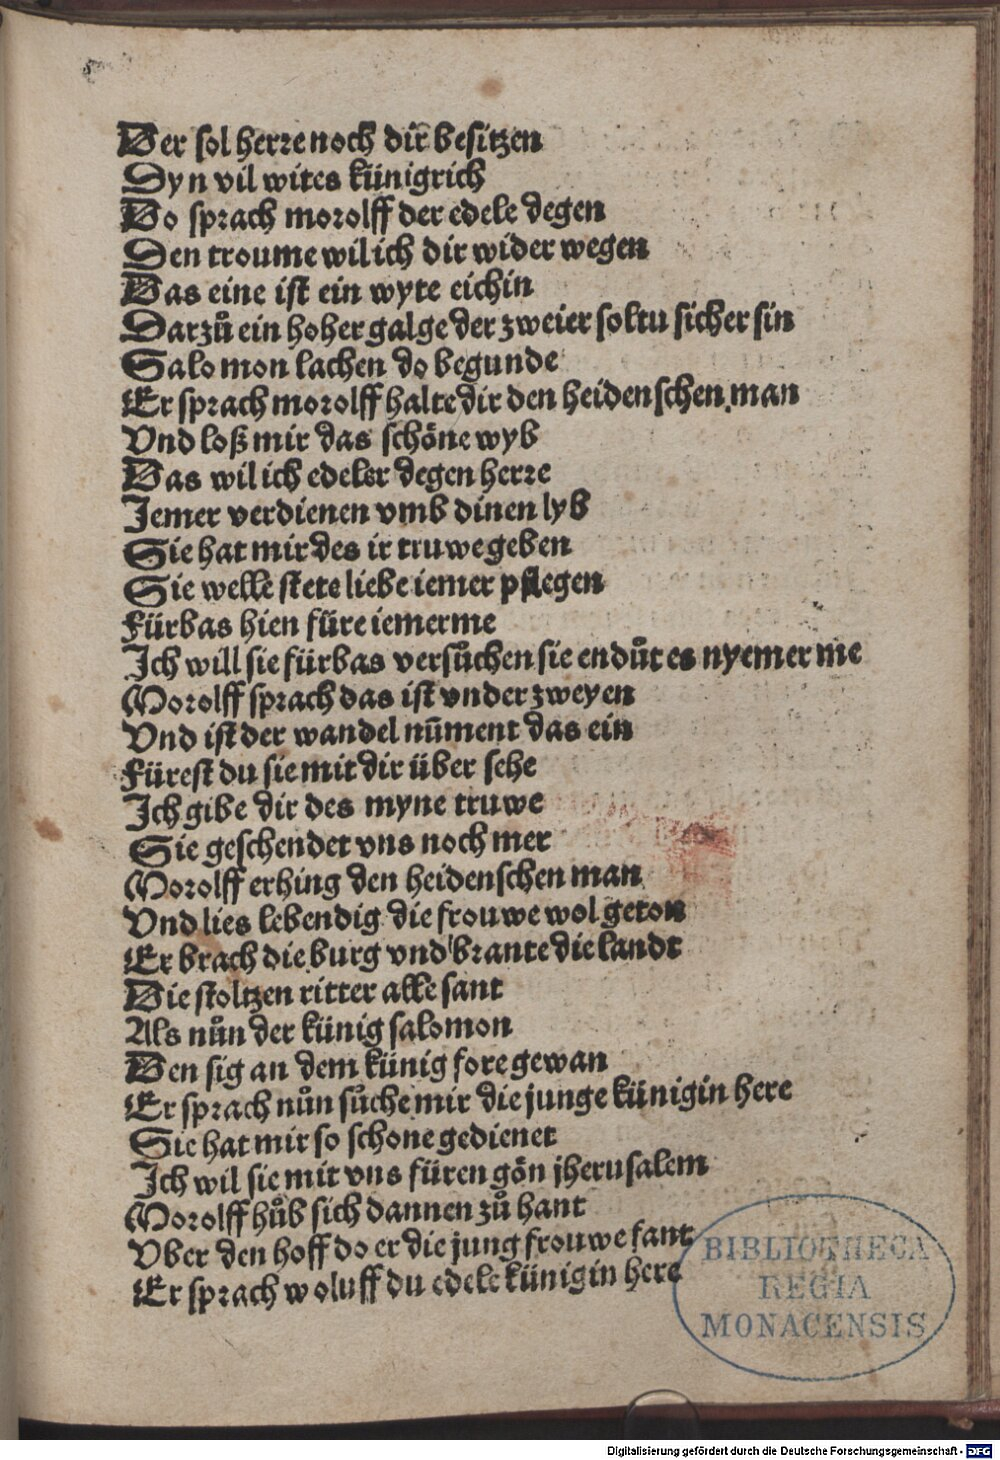 Der sol herre noch dir besitzen
Dyn vil wites künigrich
Do sprach morolff der edele degen
Den troume wil ich dir wider wegen
Das eine ist ein wyte eichin
Darzů ein hoher galge der zweier soltu sicher sin
Salomon lachen do begunde
Er sprach morolff halte dir den heidenschen man
Vnd loß mir das schöne wyb
Das wil ich edeler degen herre
Jemer verdienen vmb dinen lyb
Sie hat mir des ir truwe geben
Sie welle stete liebe iemer pflegen
Fürbas hien füre iemerme
Ich will sie fürbas versůchen sie endůt es nyemer me
Morolff sprach das ist vnder zweyen
Vnd ist der wandel nūment das ein
Fürest du sie mit dir über sehe
Ich gibe dir des myne truwe
Sie geschendet vns noch mer
Morolff erhing den heidenschen man
Vnd lies lebendig die frouwe wol geton
Er brach die burg vnd brante die landt
Die stoltzen ritter alle sant
Als nůn der künig salomon
Den sig an dem künig fore gewan
Er sprach nůn sůche mir die junge künigin here
Sie hat mir so schone gedienet
Ich wil sie mit vns füren gön jherusalem
Morolff hůb sich dannen zů hant
Vber den hoff do er die jungfrouwe fant
Er sprach woluff du edele künigin here
BIBLIOTHECA
REGIA
MONACENSIS
Digitalisierung gefördert durch die Deutsche Forschungsgemeinschaft - DFG